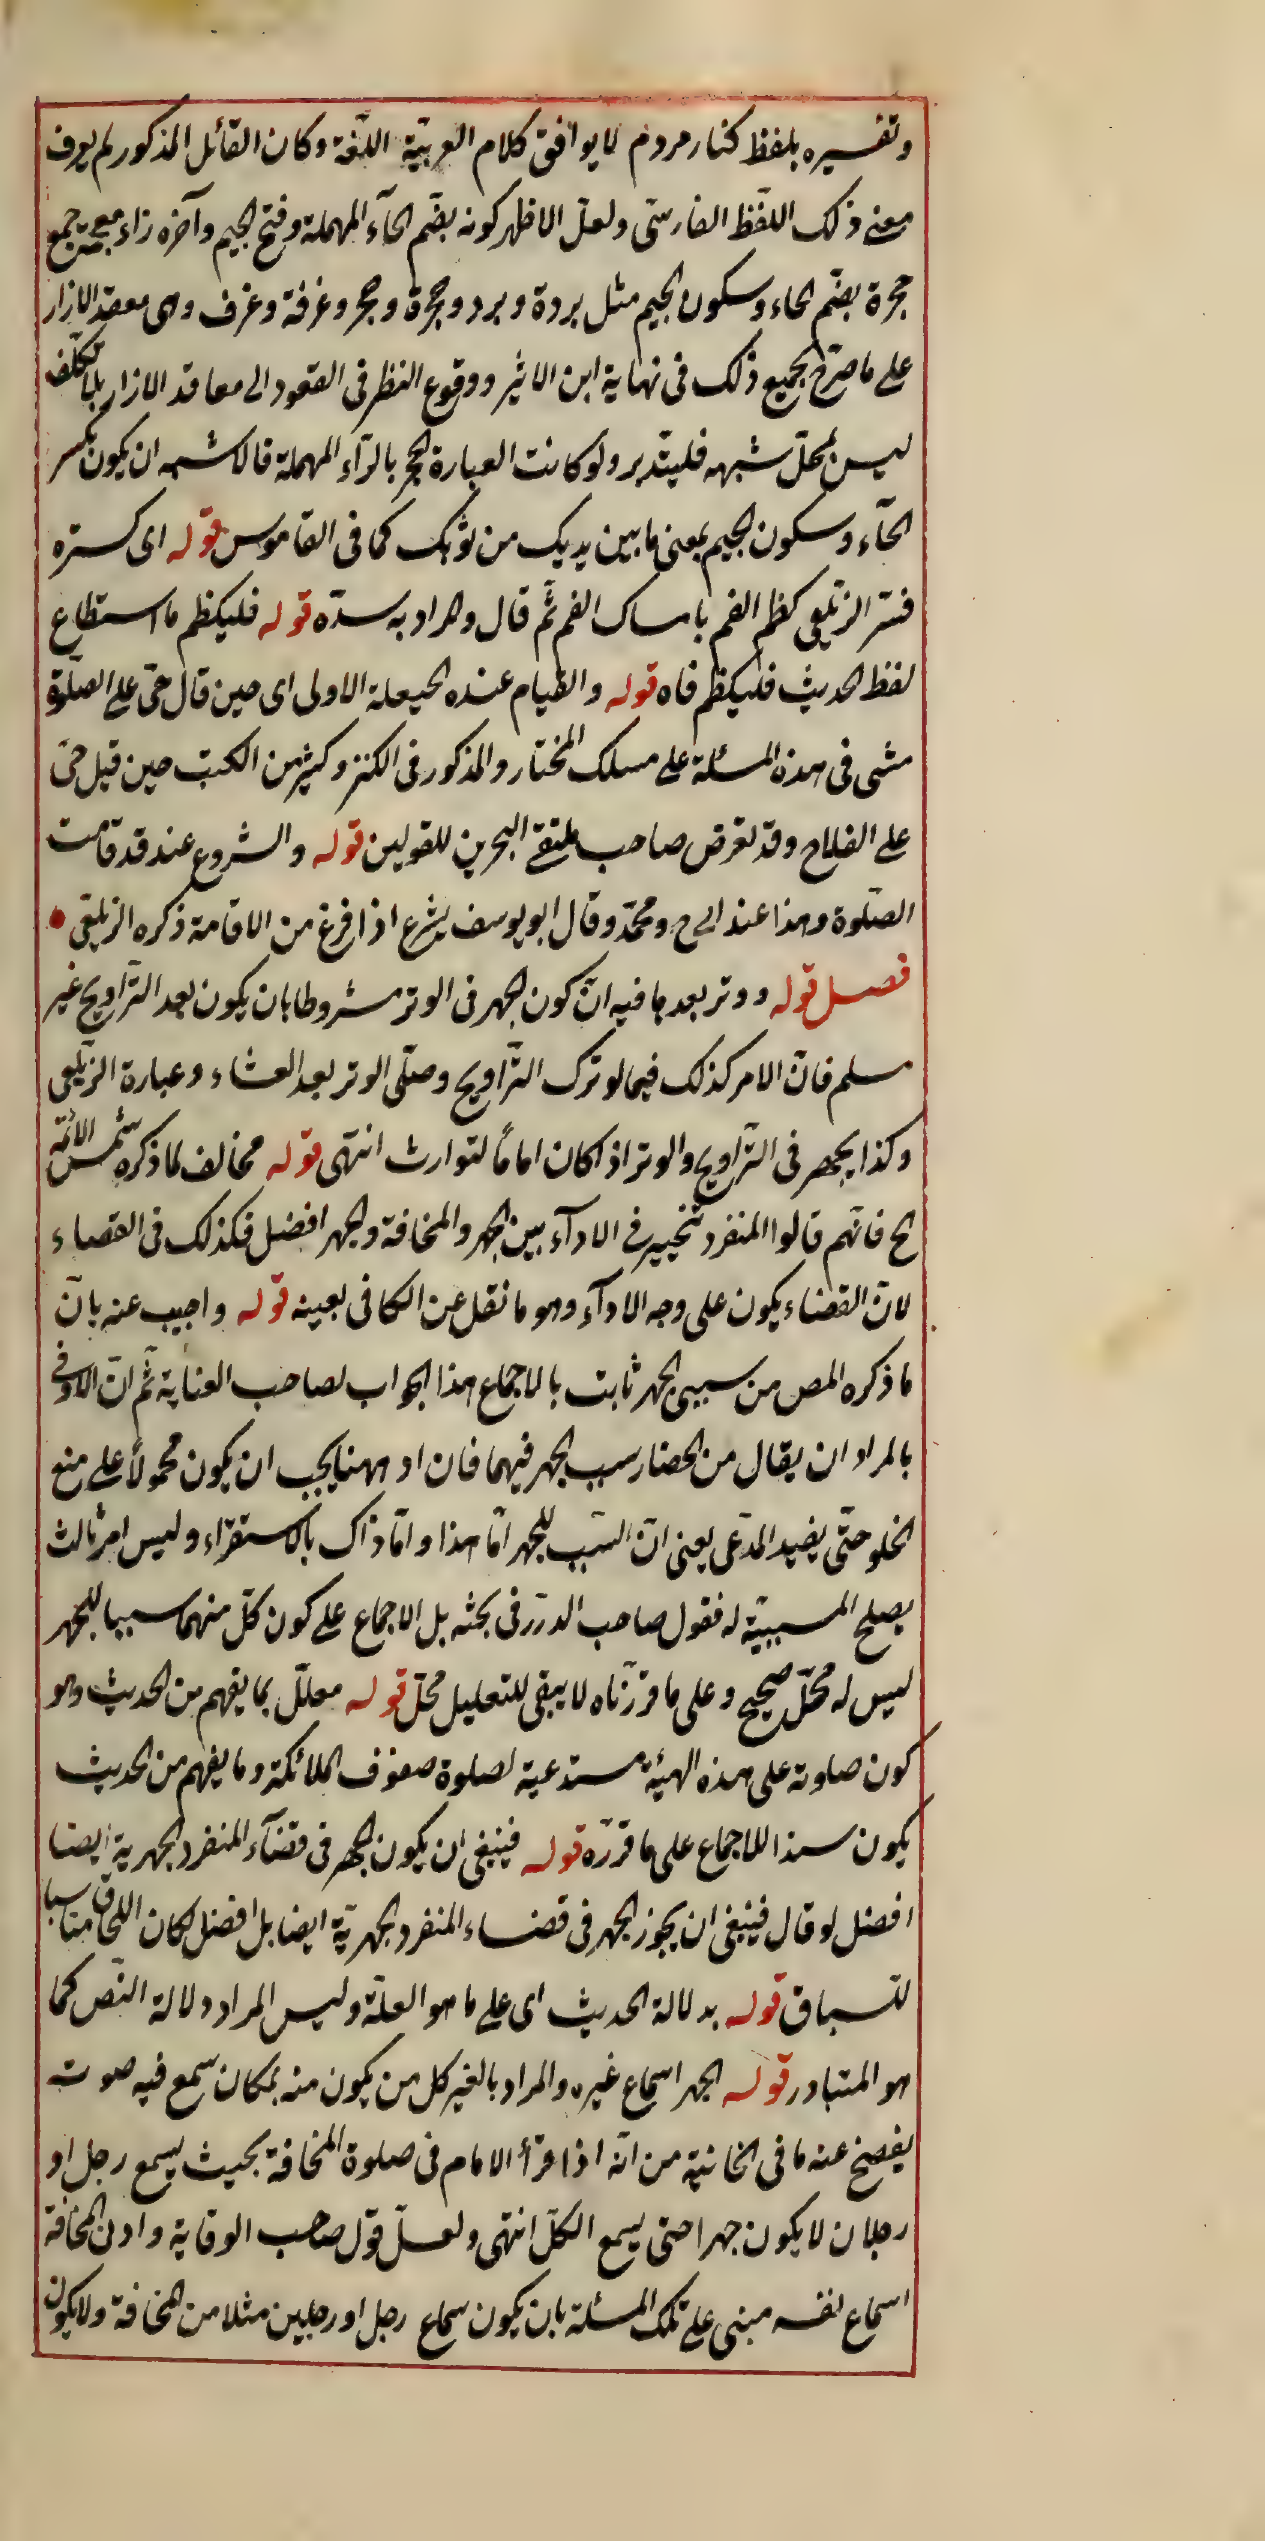 وتفسيره بلفظ كنار مردم لا يوافق كلام العربيّة اللّغة وكان القائل المذكور لم يعرف
معنى ذلك اللّفظ الفارسيّ ولعلّ الاظهر كونه بضّم الحآء المهملة وفتح الجيم وآخره زاء معجمة جمع
حجزة بضّم الحاء وسكون الجيم مثل بردة وبرد وحجرة وحجر وغرفة وغرف وهى معقد الازار
على ما صرّح بجميع ذلك فى نهاية ابن الاثير ووقوع النظر فى القعود الى معاقد الازار بلا تكلّف
ليس بمحلّ شبهه فليتّدبر ولو كانت العبارة الحجر بالرّآء المهملة فالاشبه ان يكون بكسر
الحآء وسكون الجيم بمعنى ما بين يديك من ثوبك كما فى القاموس قوله اى كستره
فسّر الزيلعى كظم الفم بامساك الفم ثّم قال والمراد به سدّه قوله فليكظم ما استطاع
لفظ الحديث فليكظم فاه قوله والقيام عنده الحيعلة الاولى اى حين قال حىّ على الصلّوة
مشى فى هذه المسئلة على مسلك المختار والمذكور فى الكنز وكثير من الكتب حين قيل حىّ
على الفلاح وقد تعرض صاحب ملتقى البحرين للقولين قوله والشروع عند قد قامت
الصلّوة وهذا عند ابى ح ومحمّد وقال ابو يوسف يشرع اذا فرغ من الاقامة ذكره الزيلعى
فصل قوله ووتر بعدها فيه انّ كون الجهر فى الوتر مشروطا بان يكون بعد التّراويح غير
مسلم فانّ الامر كذلك فيما لو ترك التّراويح وصلّى الوتر بعد العشاء وعبارة الزّيلعى
وكذا يجهر فى التّراويح والوتر اذا كان اماماً لتوارث انتهى قوله مخالف لما ذكره شمس الائمّة
الخ فانّهم قالوا المنفرد تخيير فى الادآء بين الجهر والمخافة والجهر افضل فكذلك فى القضاء
لانّ القضاء يكون على وجه الادآء وهو ما نقل عن الكافى بعينه قوله واجيب عنه بانّ
ما ذكره المص من سببى الجهر ثابت بالاجماع هذا الجواب لصاحب العناية ثّم انّ الاوفى
بالمراد ان يقال من انحصار سبب الجهر فيهما فان او ههنا يجب ان يكون محمولاً على منع
الخلو حتّى يفيد المدّعى يعنى انّ السّبب للجهر امّا هذا وامّا ذاك بالاستقراء وليس امر ثالث
يصلح المسببيّة له فقول صاحب الدرر فى بحثه بل الاجماع على كون كلّ منهما سببيا للجهر
ليس له محّل صحيح وعلى ما قرّرناه لا يبقى للتعليل محلّ قوله معلّل بما يفهم من الحديث وهو
كون صلوته على هذه الهيئة مستدعية لصلوة صفوف الملائكة وما يفهم من الحديث
يكون سندا للاجماع على ما قرّره قوله فينبغى ان يكون الجهر فى قضآء المنفرد الجهرية ايضا
افضل لو قال فينبغى ان يجوز الجهر فى قضاء المنفرد الجهريّة ايضا بل افضل لكان اللحاق مناسبا
للسباق قوله بدلالة الحديث اى على ما هو العلّة وليس المراد دلالة النصّ كما
هو المتبادر قوله الجهر اسماع غيره والمراد بالغير كل من يكون منه بمكان يسمع فيه صوته
يفصح عنه ما فى الخانيّة من انّه اذا قرأ الامام فى صلوة المخافة بحيث يسمع رجل او
رجلان لا يكون جهرا حتى يسمع الكلّ انتهى ولعلّ قول صاحب الوقاية وادنى المخافة
اسماع نفسه مبنى على تلك المسئلة بان يكون سماع رجل او رجلين مثلا من المخافة ولا يكون